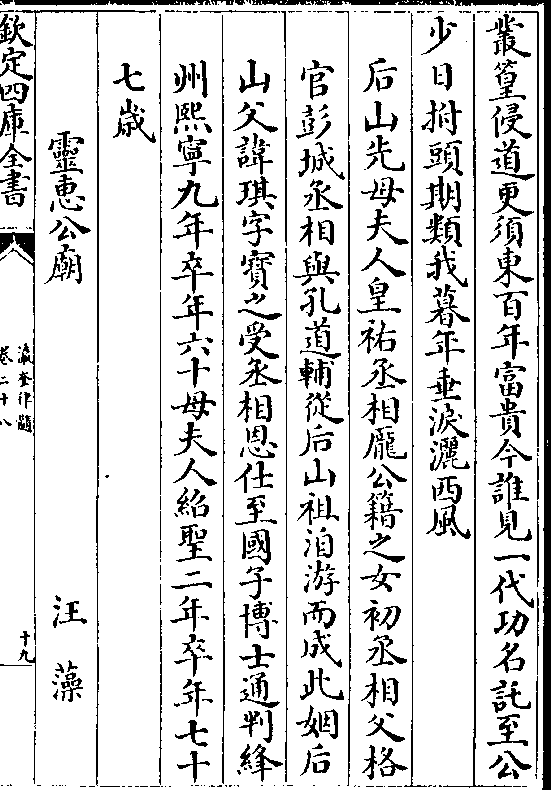 叢篁侵道更須東百年富貴今誰見一代功名託至公
少日拊頭期類我暮年垂淚灑西風
后山先母夫人皇祐丞相龎公籍之女初丞相父格
官彭城丞相與孔道輔從后山祖洎游而成此姻后
山父諱琪字寳之受丞相恩仕至國子博士通判絳
州熙寧九年卒年六十母夫人紹聖二年卒年七十
七歳
靈惠公廟 汪藻
欽定四庫全書
瀛奎律髓
卷二十八
十九